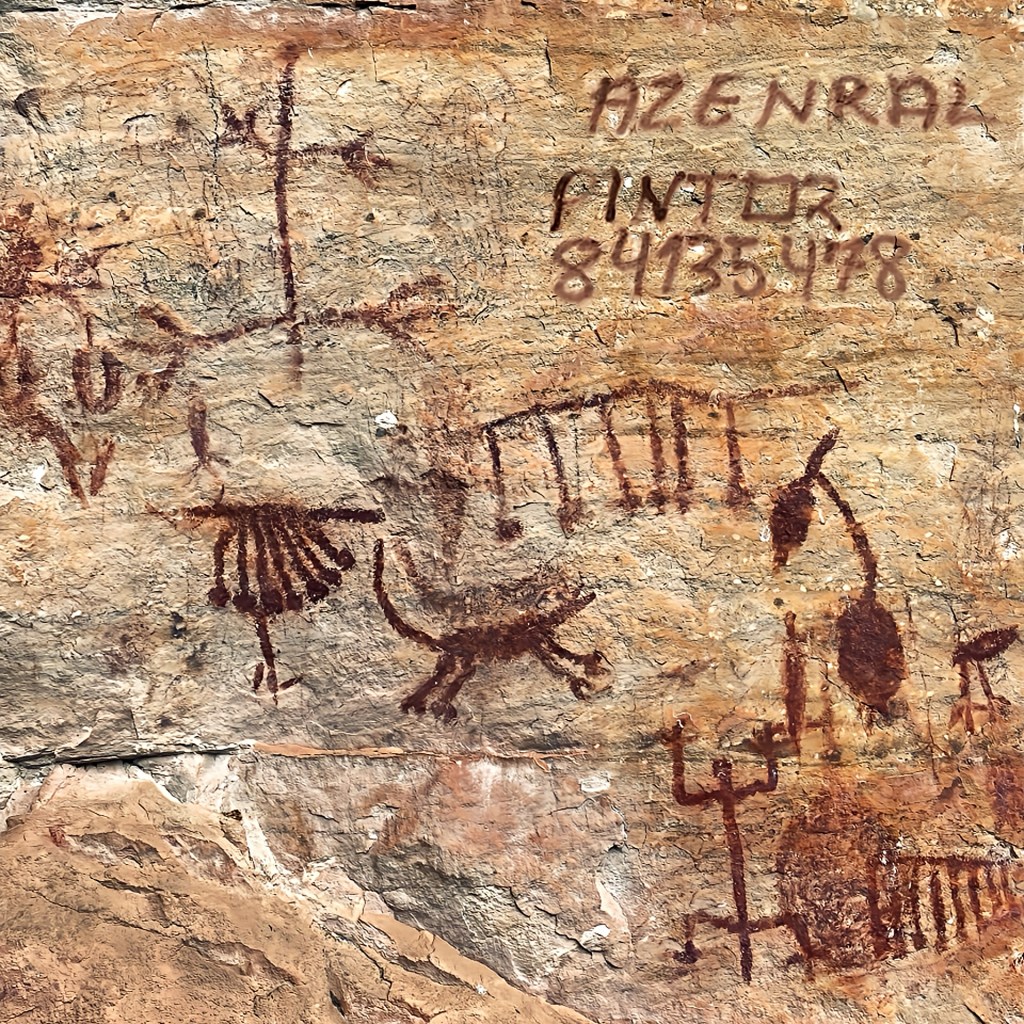 AZENRAL
PINTOR
84135478